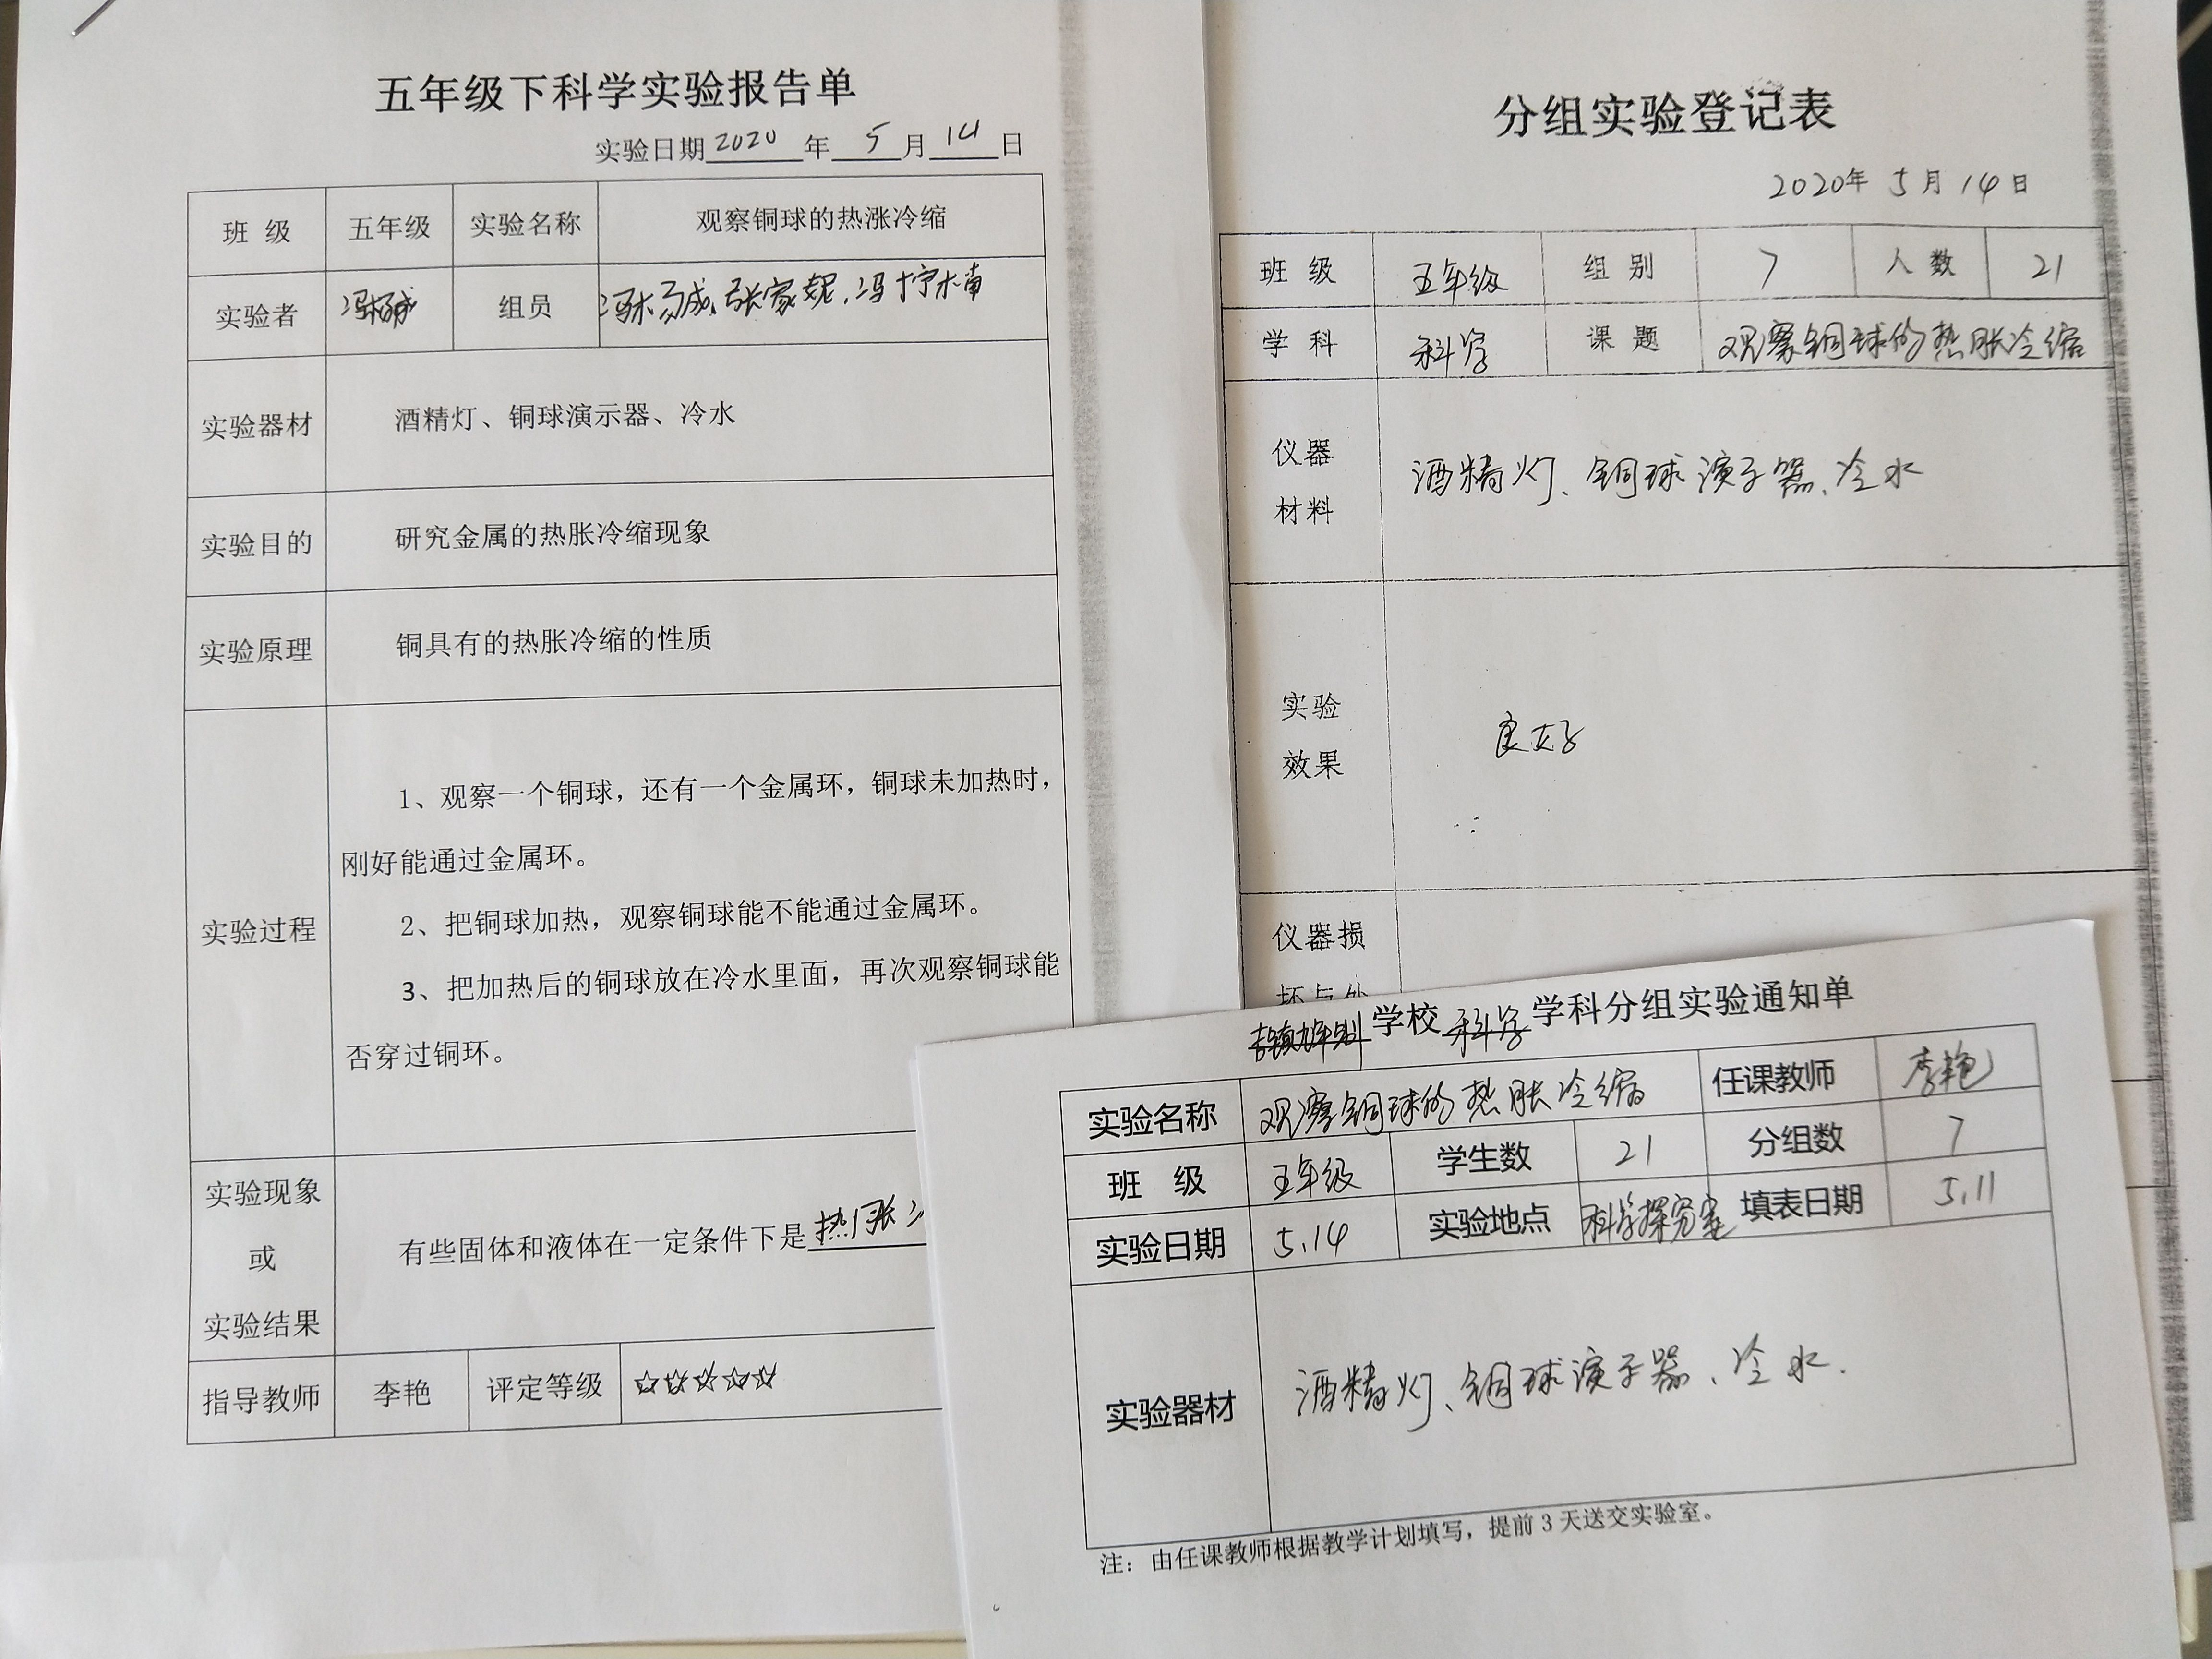 五年级下科学实验报告单
实验日期2020年5月14日
班 级 五年级 实验名称 观察铜球的热涨冷缩
实验者 冯杨成 组员 冯杨成、张家妮、冯柠楠
实验器材 酒精灯、铜球演示器、冷水
实验目的 研究金属的热胀冷缩现象
实验原理 铜具有的热胀冷缩的性质
实验过程
1、观察一个铜球，还有一个金属环，铜球未加热时，
刚好能通过金属环。
2、把铜球加热，观察铜球能不能通过金属环。
3、把加热后的铜球放在冷水里面，再次观察铜球能
否穿过铜环。
实验现象
或
实验结果
有些固体和液体在一定条件下是热胀
指导教师 李艳 评定等级 ☆☆☆☆☆
分组实验登记表
2020年 5月 14日
班 级 五年级 组 别 7 人 数 21
学 科 科学 课 题 观察铜球的热胀冷缩
仪器
材料
酒精灯、铜球演子器、冷水
实验
效果
良好
仪器损
坏与处
学校 科学 学科分组实验通知单
实验名称 观察铜球的热胀冷缩 任课教师 李艳
班 级 五年级 学生数 21 分组数 7
实验日期 5.14 实验地点 科学探究室 填表日期 5.11
实验器材 酒精灯、铜球演子器、冷水.
注：由任课教师根据教学计划填写，提前3天送交实验室。